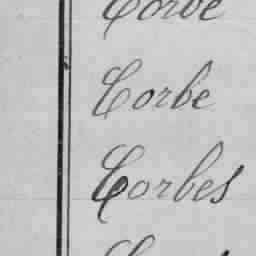 Corbe
Corbe
Corbes